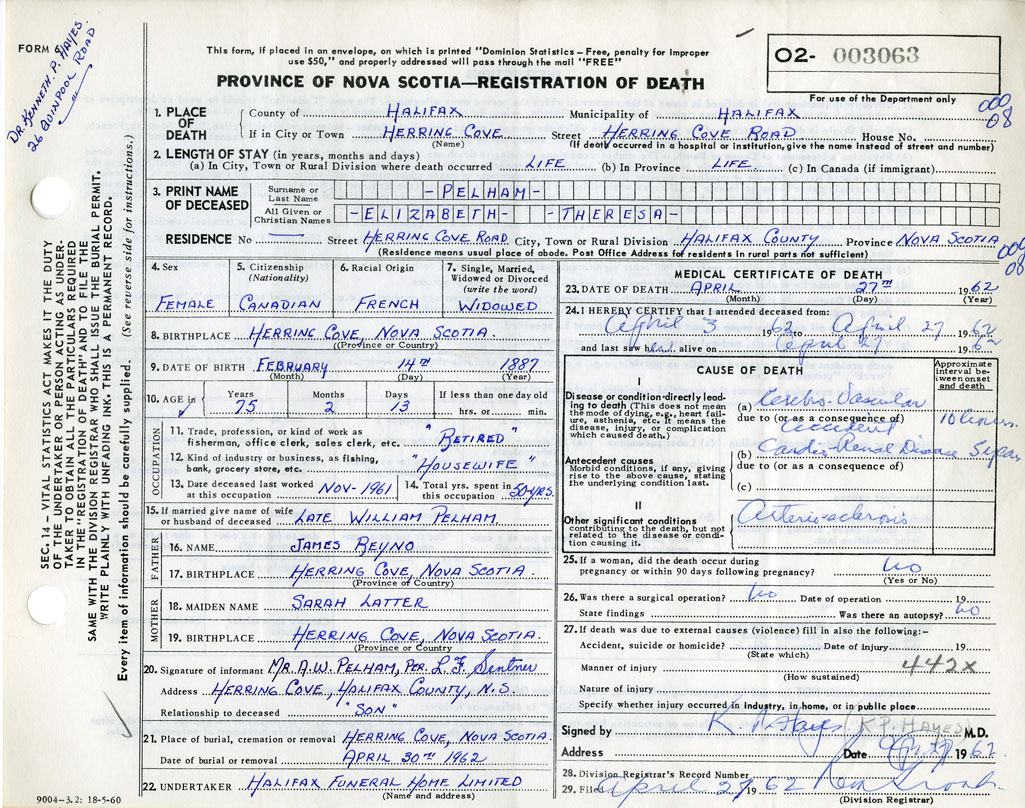 FORM 6
DR. KENNETH P. HAYES.
26 QUINPOOL ROAD
This form, if placed in an envelope, on which is printed "Dominion Statistics—Free, penalty for improper
use $50," and properly addressed will pass through the mail "FREE"
PROVINCE OF NOVA SCOTIA—REGISTRATION OF DEATH
O2- 003063
For use of the Department only
000
08
1. PLACE OF DEATH
County of HALIFAX Municipality of HALIFAX
If in City or Town HERRING COVE Street HERRING COVE ROAD House No.
(Name) (If death occurred in a hospital or institution, give the name instead of street and number)
2. LENGTH OF STAY (in years, months and days)
(a) In City, Town or Rural Division where death occurred LIFE (b) In Province LIFE (c) In Canada (if immigrant)
3. PRINT NAME OF DECEASED
Surname or Last Name -PELHAM-
All Given or Christian Names -ELIZABETH- -THERESA-
RESIDENCE No — Street HERRING COVE ROAD. City, Town or Rural Division HALIFAX COUNTY Province NOVA SCOTIA
(Residence means usual place of abode. Post Office Address for residents in rural parts not sufficient)
000
08
4. Sex 5. Citizenship (Nationality) 6. Racial Origin 7. Single, Married, Widowed or Divorced (write the word)
FEMALE CANADIAN FRENCH WIDOWED
8. BIRTHPLACE HERRING COVE, NOVA SCOTIA.
(Province or Country)
9. DATE OF BIRTH FEBRUARY 14TH 1887
(Month) (Day) (Year)
10. AGE in Years Months Days If less than one day old
75 2 13 hrs. or min.
OCCUPATION
11. Trade, profession, or kind of work as
fisherman, office clerk, sales clerk, etc. "RETIRED"
12. Kind of industry or business, as fishing,
bank, grocery store, etc. "HOUSEWIFE"
13. Date deceased last worked at this occupation NOV-1961 14. Total yrs. spent in this occupation 50 YRS.
15. If married give name of wife or husband of deceased LATE WILLIAM PELHAM.
FATHER
16. NAME JAMES REYNO
17. BIRTHPLACE HERRING COVE, NOVA SCOTIA.
(Province of Country)
MOTHER
18. MAIDEN NAME SARAH LATTER
19. BIRTHPLACE HERRING COVE, NOVA SCOTIA.
(Province or Country
20. Signature of informant MR. A.W. PELHAM, PER. L.F. Sentner
Address HERRING COVE, HALIFAX COUNTY, N.S.
Relationship to deceased "SON"
21. Place of burial, cremation or removal HERRING COVE, NOVA SCOTIA.
Date of burial or removal APRIL 30TH 1962
22. UNDERTAKER HALIFAX FUNERAL HOME LIMITED
(Name and address)
9004-3.2: 18-5-60
MEDICAL CERTIFICATE OF DEATH
23. DATE OF DEATH APRIL 27TH 1962
(Month) (Day) (Year)
24. I HEREBY CERTIFY that I attended deceased from:
April 3 1962 to April 27 1962
and last saw her alive on April 27 1962
CAUSE OF DEATH
Approximate interval between onset and death
I
Disease or condition directly leading to death (This does not mean the mode of dying, e.g., heart failure, asthenia, etc. It means the disease, injury, or complication which caused death.)
(a) Cerebro-Vascular
due to (or as a consequence of)
accident 10 hours.
Antecedent causes
Morbid conditions, if any, giving rise to the above cause, stating the underlying condition last.
(b) Cardio-Renal Disease
due to (or as a consequence of)
(c)
II
Other significant conditions contributing to the death, but not related to the disease or condition causing it.
Arterio-sclerosis
25. If a woman, did the death occur during
pregnancy or within 90 days following pregnancy? No
(Yes or No)
26. Was there a surgical operation? No Date of operation 19
State findings Was there an autopsy? No
27. If death was due to external causes (violence) fill in also the following:—
Accident, suicide or homicide? Date of injury 19
(State which)
Manner of injury 442X
(How sustained)
Nature of injury
Specify whether injury occurred in industry, in home, or in public place
Signed by K P Hayes (K P. HAYES) M.D.
Address Date Apr 27 1962
28. Division Registrar's Record Number
29. Filed April 27 1962
(Division Registrar)
SEC. 14 — VITAL STATISTICS ACT MAKES IT THE DUTY
OF THE UNDERTAKER OR PERSON ACTING AS UNDER-
TAKER TO OBTAIN ALL THE PARTICULARS REQUIRED
IN THE "REGISTRATION OF DEATH" AND TO FILE THE
SAME WITH THE DIVISION REGISTRAR WHO SHALL ISSUE THE BURIAL PERMIT.
WRITE PLAINLY WITH UNFADING INK. THIS IS A PERMANENT RECORD.
Every item of information should be carefully supplied. (See reverse side for instructions.)